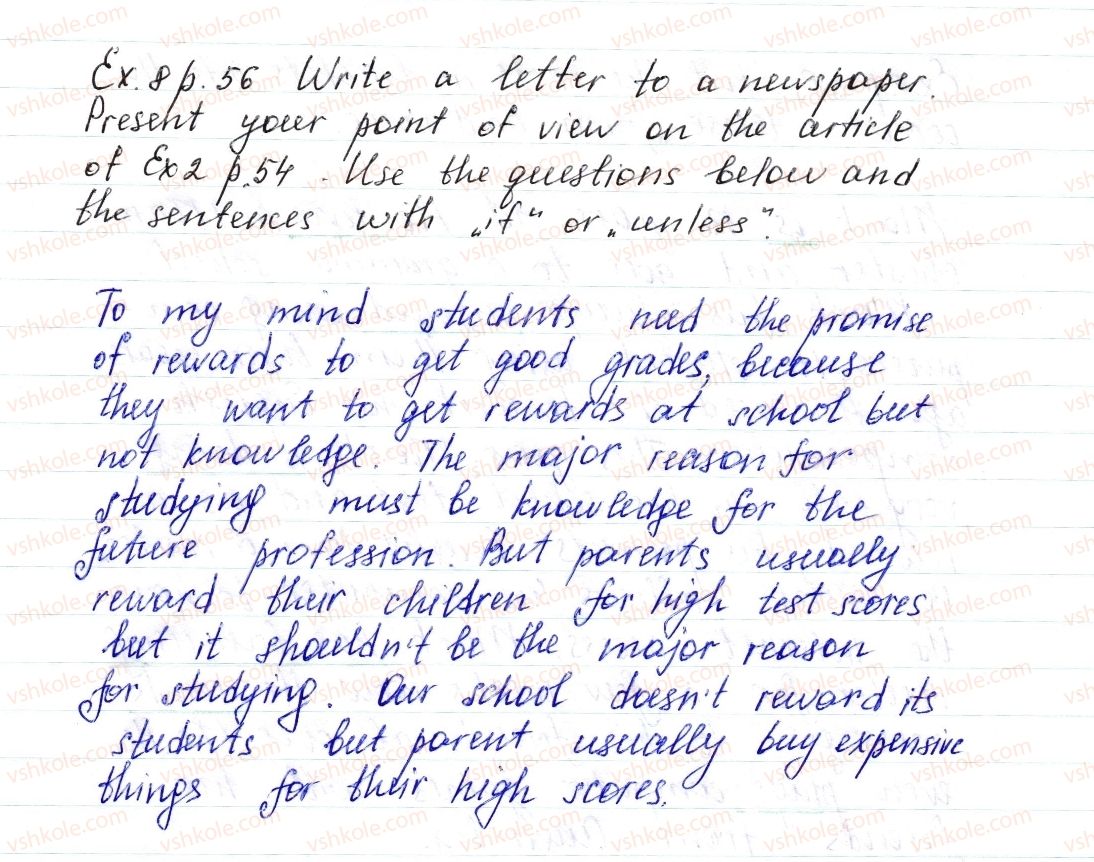 Ex. 8 p. 56 Write a letter to a newspaper.
Present your point of view on the article
of Ex 2 p. 54. Use the questions below and
the sentences with „if“ or „unless“.
To my mind students need the promise
of rewards to get good grades, because
they want to get rewards at school but
not knowledge. The major reason for
studying must be knowledge for the
future profession. But parents usually
reward their children for high test scores
but it shouldn't be the major reason
for studying. Our school doesn't reward its
students but parent usually buy expensive
things for their high scores.
vshkole.com